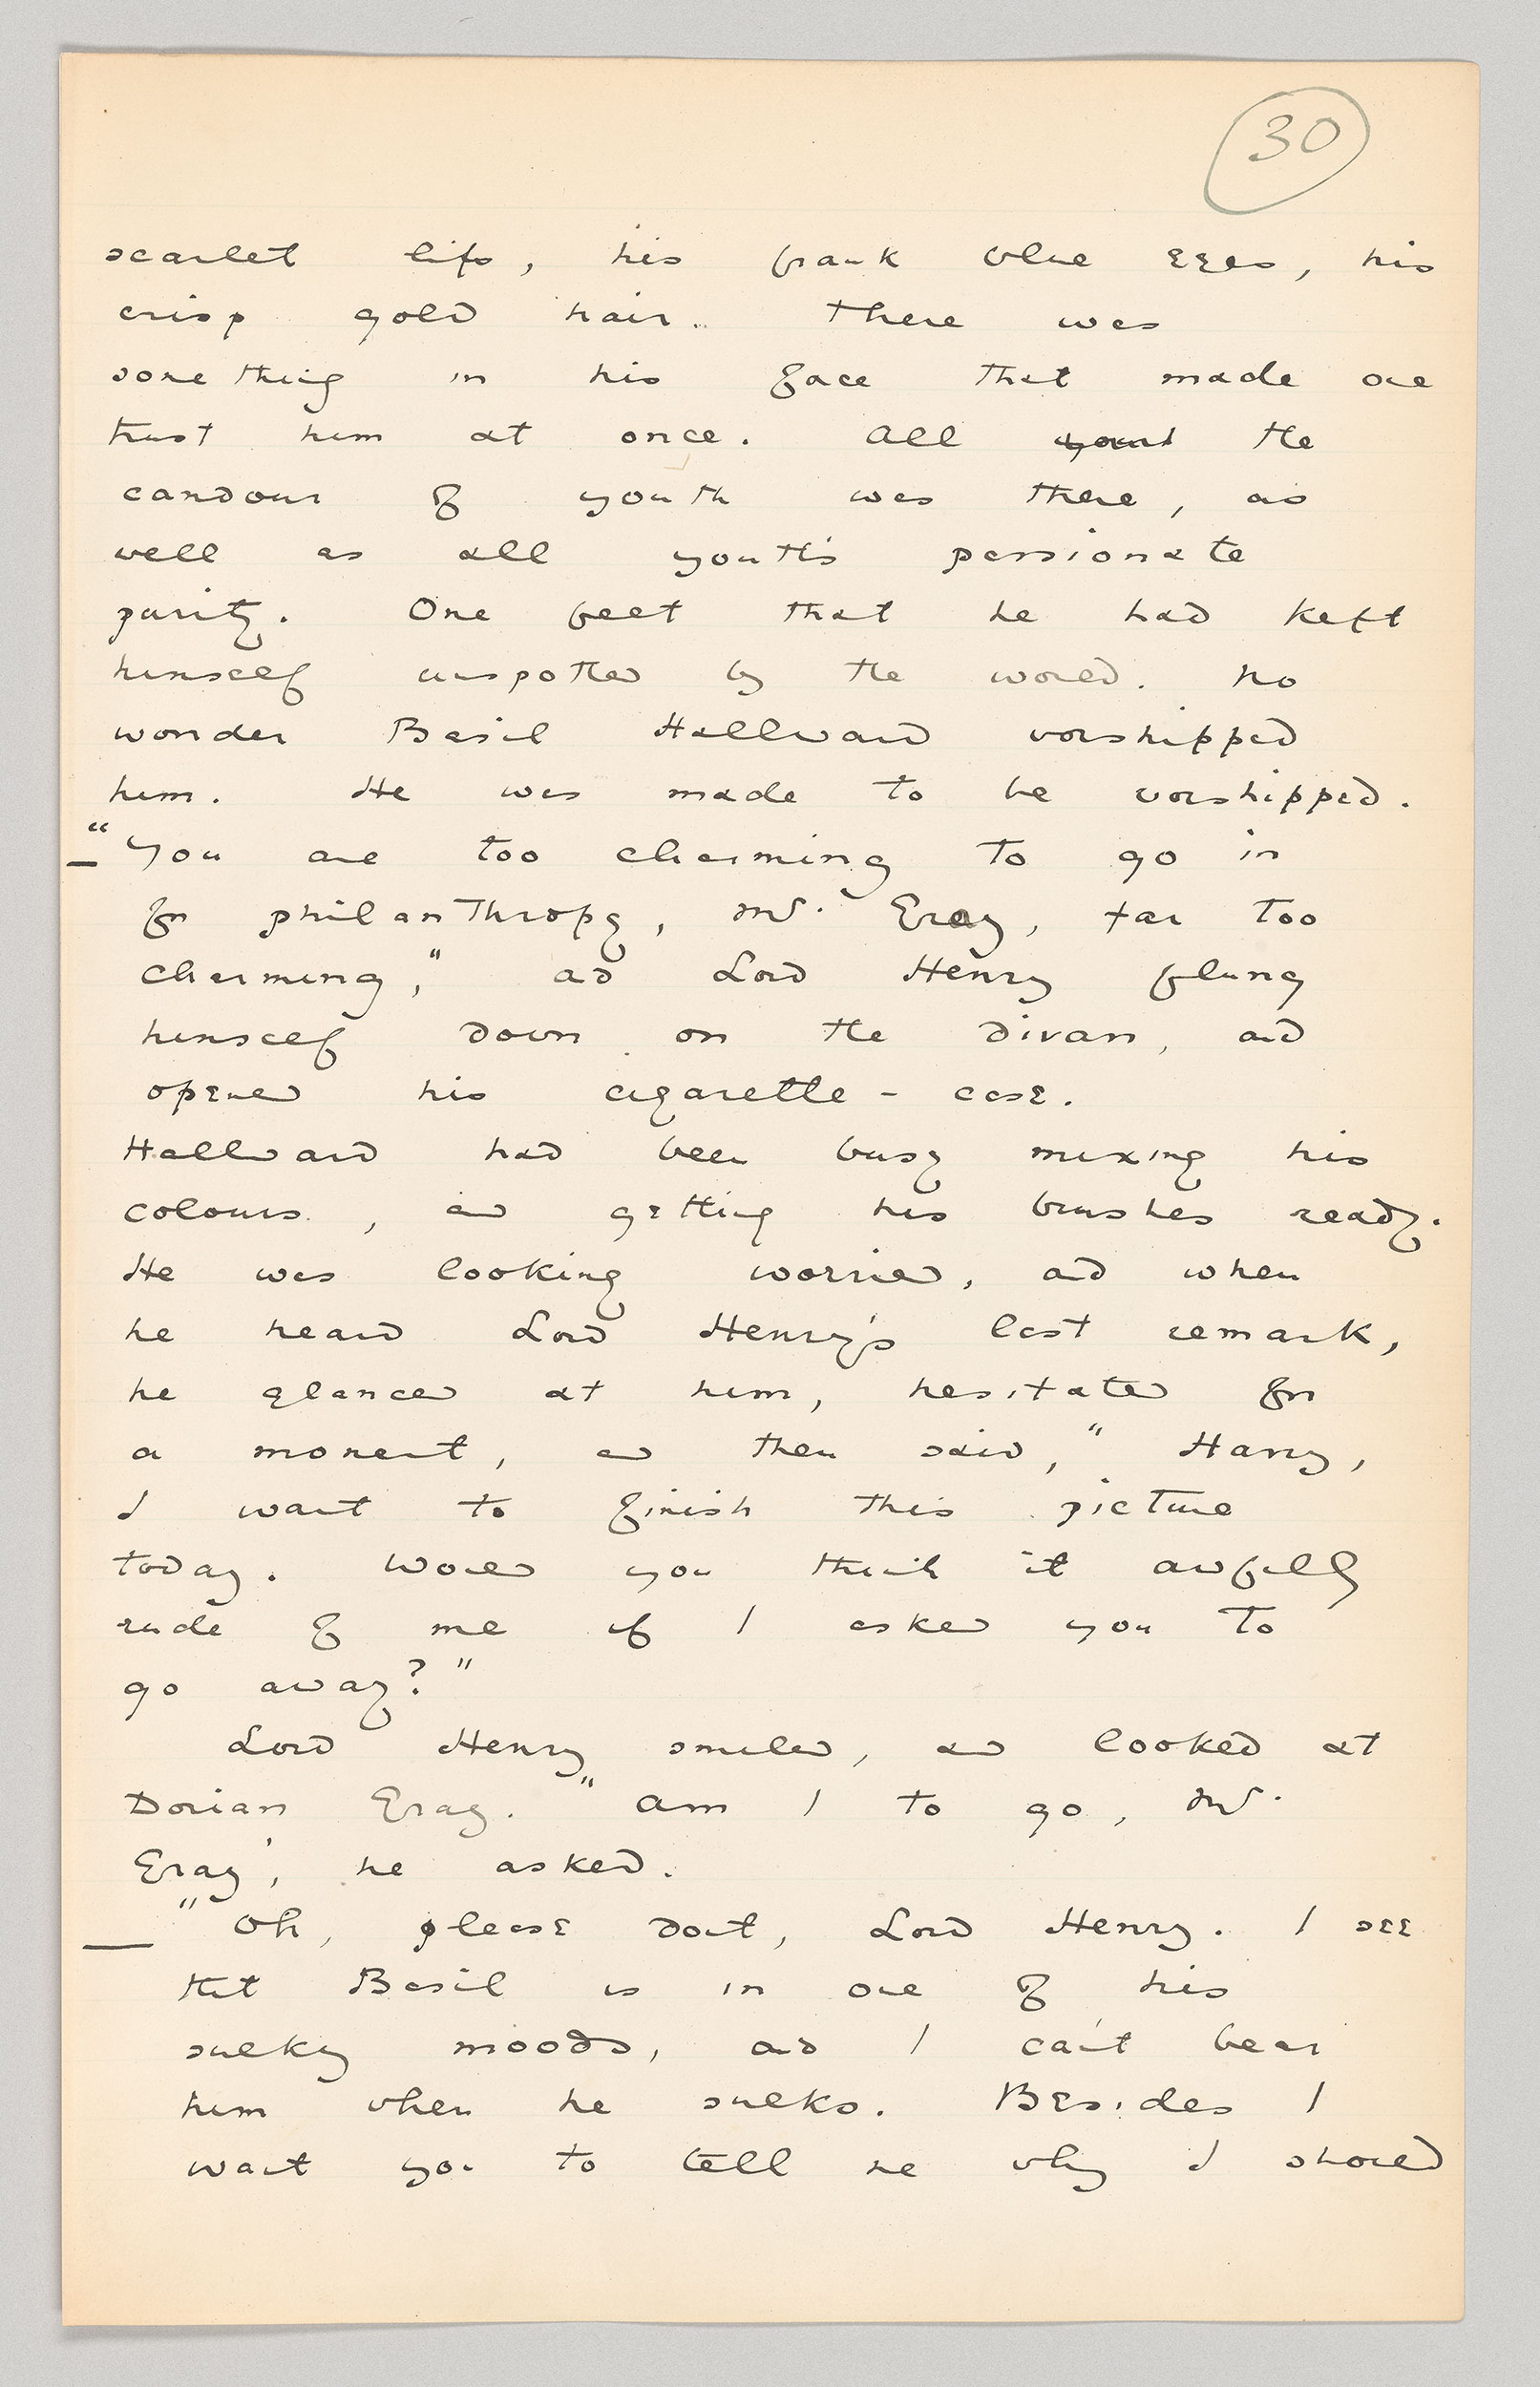 30
scarlet lips, his frank blue eyes, his
crisp gold hair. There was
something in his face that made one
trust him at once. All yout the
candour of youth was there, as
well as all youth's passionate
purity. One felt that he had kept
himself unspotted by the world. No
wonder Basil Hallward worshipped
him. He was made to be worshipped.
— "You are too charming to go in
for philanthropy, Mr. Gray, far too
charming," and Lord Henry flung
himself down on the divan, and
opened his cigarette-case.
Hallward had been busy mixing his
colours, and getting his brushes ready.
He was looking worried, and when
he heard Lord Henry's last remark,
he glanced at him, hesitated for
a moment, and then said, "Harry,
I want to finish this picture
today. Would you think it awfully
rude of me if I asked you to
go away?"
Lord Henry smiled, and looked at
Dorian Gray. "Am I to go, Mr.
Gray', he asked.
— "Oh, please don't, Lord Henry. I see
that Basil is in one of his
sulky moods, and I can't bear
him when he sulks. Besides I
want you to tell me why I should